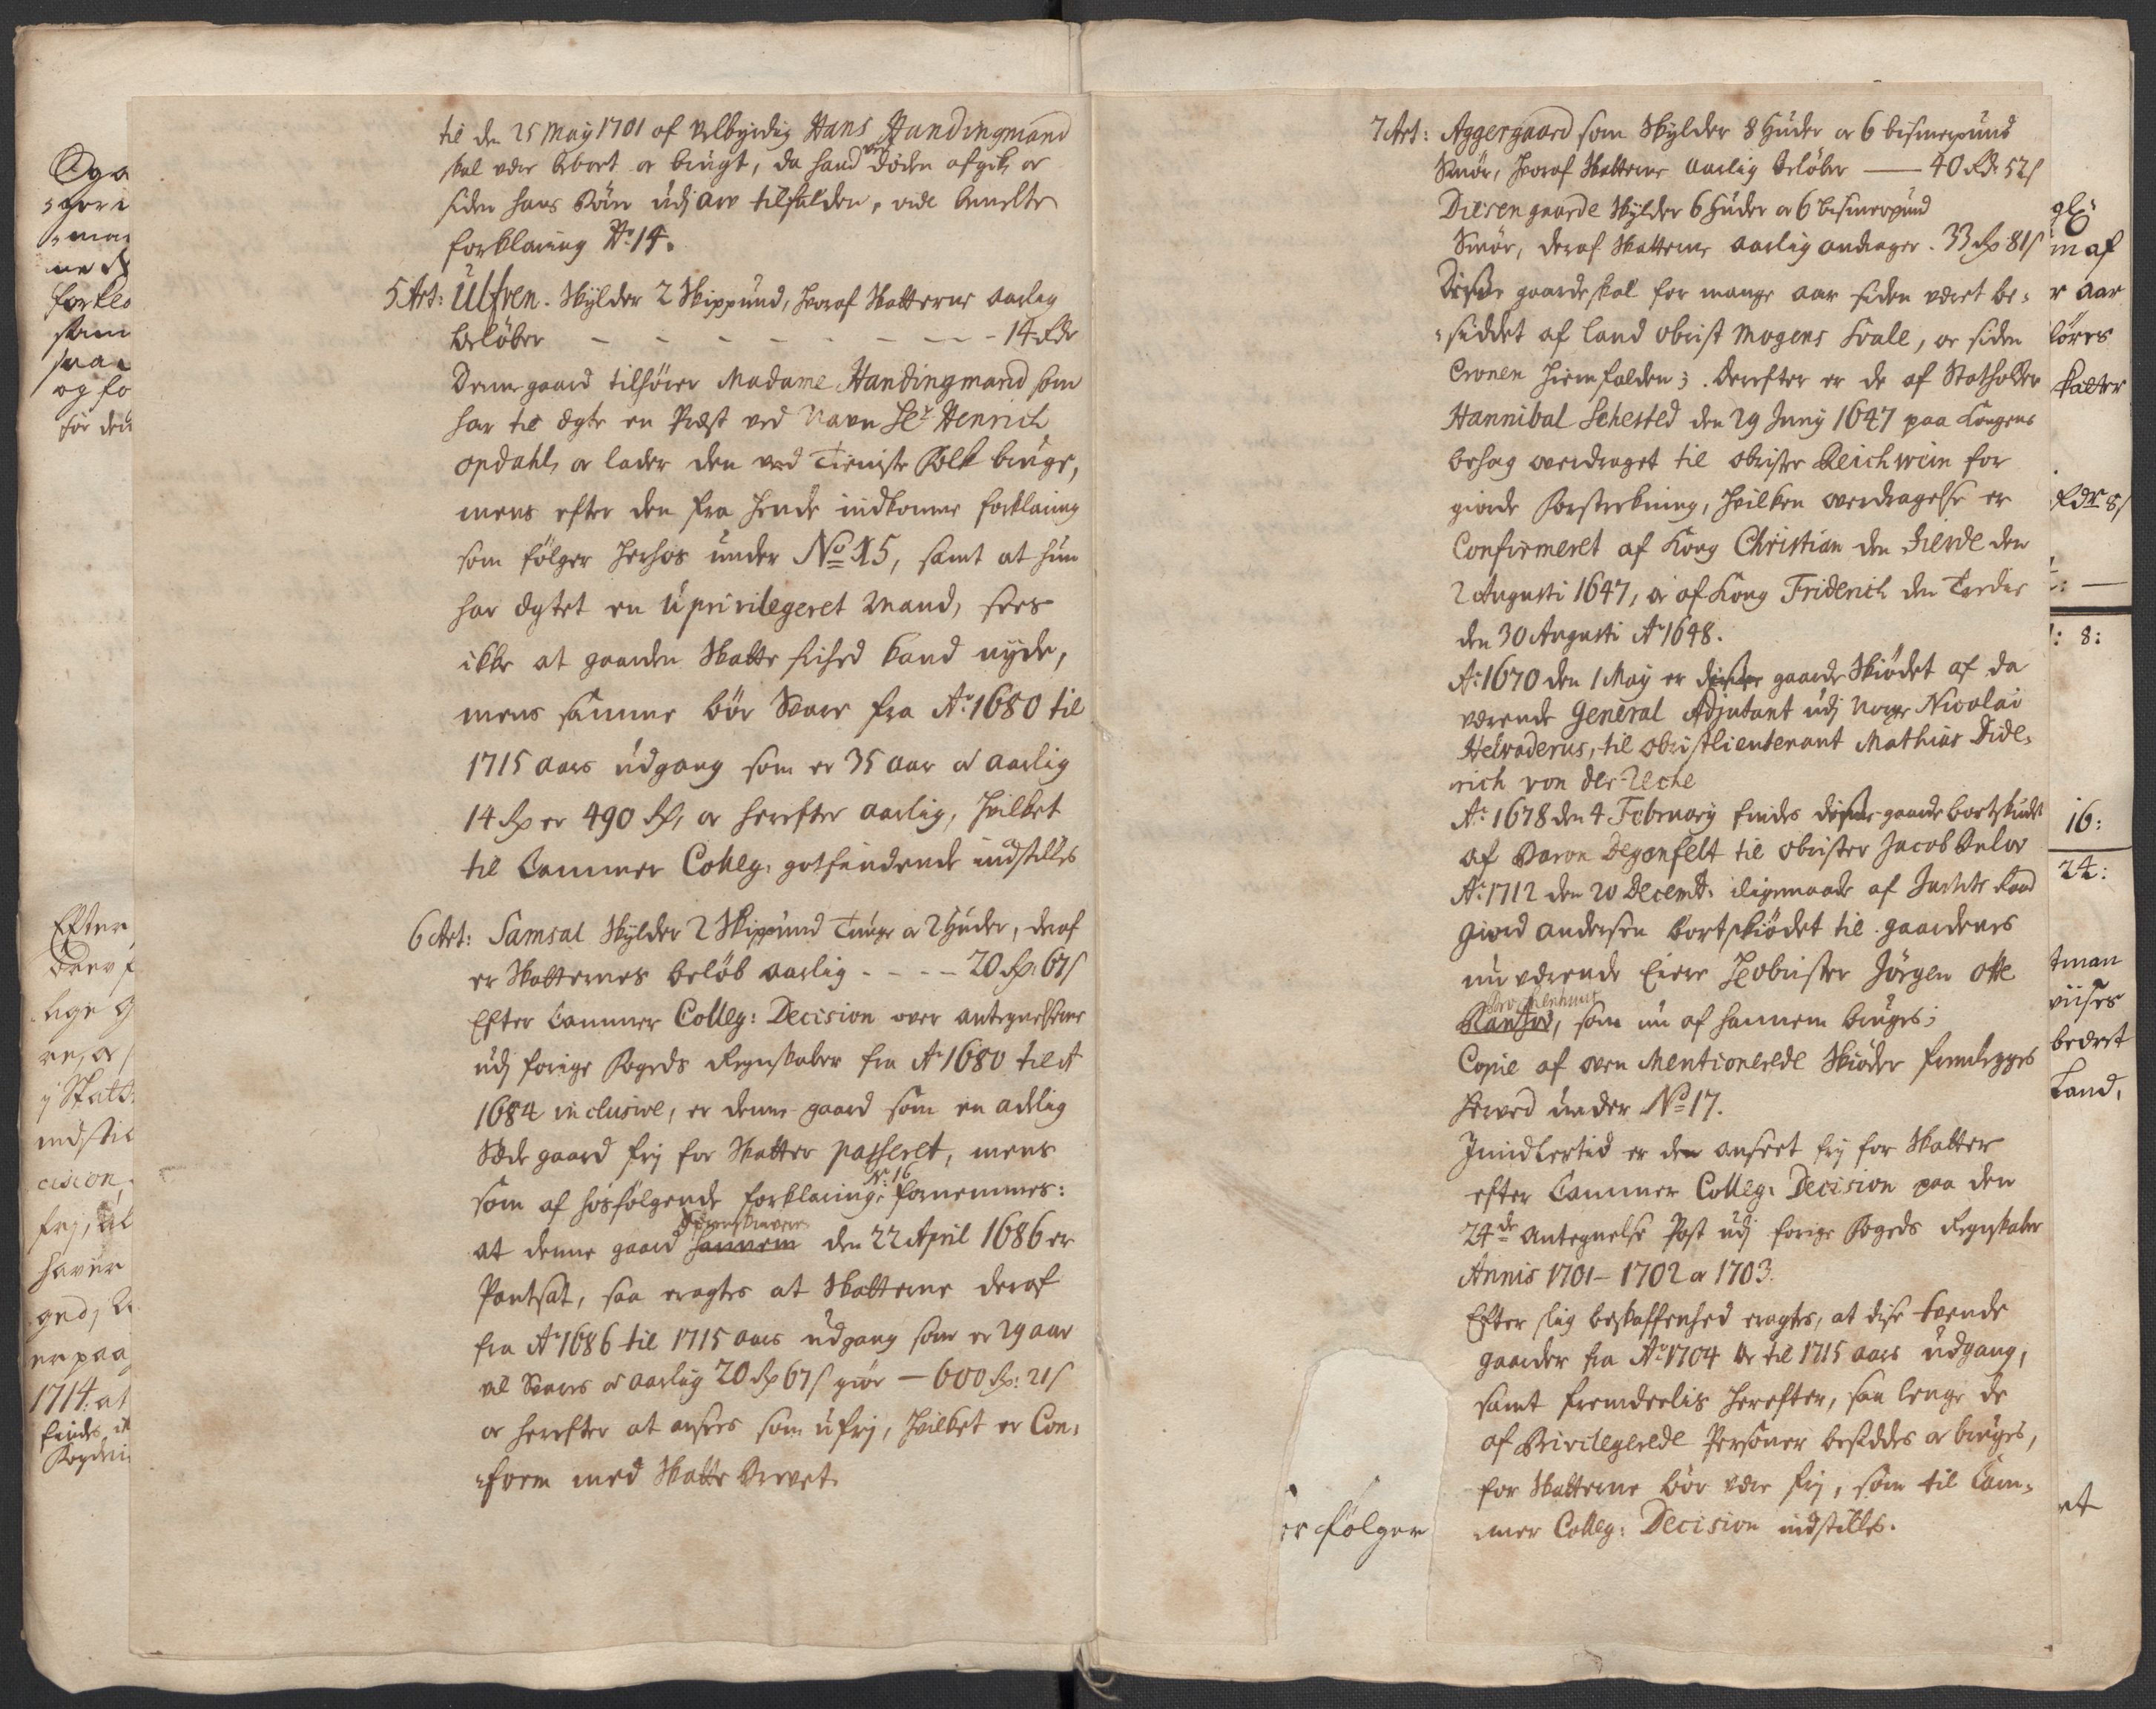 til den 25 Maÿ 1701 af velbÿrdig Hans Handingmand
skal være beboet og brugt, da hand ved døden afgik, og
siden hans Børn udj arv tilfalden, vide bemelte
forklaring No. 14.
5 Art: Ulfven. Skÿlder 2 Skippund, hvoraf Skatterne aarlig
beløber - - - - - - - - 14 Rdr
Denne gaard tilhører Madame Handingmand som
har til ægte en Præst ved Navn Hr. Henrich
opdahl, og lader den ved Tieniste Folk bruge,
mens efter den fra hende indkomne forklaring
som følger herhos under No 15, samt at hun
har ægtet en uprivilegeret Mand, sees
ikke at gaarden Skatte frihed kand nÿde,
mens samme bør Svare fra Ao. 1680 til
1715 aars udgang som er 35 aar à aarlig
14 Rdr er 490 Rdr, og herefter aarlig, hvilket
til Cammer Colleg: gotfindende indstilles
6 Art: Samsal Skÿlder 2 Skippund Tunge og 2 Huder, deraf
er Skatternes beløb aarlig - - - - 20 Rdr: 67 s
Efter Cammer Colleg: Decision over antegnelserne
udj forige Fogeds Regnskaber fra Ao 1680 til A
1684 inclusive, er denne gaard som en adelig
Sæde gaard frj for Skatter passeret, mens
som af hosfølgende forklaring No: 16 fornemmes:
at denne gaard hannem den 22 April 1686 er
Pantsat, saa eragtes at Skatterne deraf
fra Ao 1686 til 1715 aars udgang som er 29 aar
vil Svares à aarlig 20 Rdr 67 s giør — 600 Rdr: 21 s
og herefter at ansees som ufrj, hvilket er Con-
form med Skatte Brevet.
7 Art: Aggergaard som Skÿlder 8 Huder og 6 bismerpund
Smør, hvoraf Skatterne aarlig beløber — 40 Rdr. 52 s
Diesen gaarde Skÿlder 6 Huder og 6 bismerpund
Smør, deraf Skatterne aarlig andrager. 33 Rdr 81 s
Disse gaarde skal for mange aar siden været be-
siddet af land obrist Mogens Svale, og siden
Cronen hiemfalden; derefter er de af Statholder
Hannibal Sehested den 29 Junÿ 1647 paa Kongens
behag overdraget til obrister Reichwein for
giorde Forstrekning, hvilken overdragelse er
Confirmeret af Kong Christian den Fierde den
2 Augusti 1647, og af Kong Friderich den Tredie
den 30 Augusti Ao 1648.
Ao: 1670 den 1 Maÿ er disse gaarde Skiødet af da
værende General Adjutant udj Norge Nicolai
Helvaderus, til obristlieutenant Mathias Dide-
rich von der Reche
Ao: 1678 den 4 Februarÿ findes disse gaarde bortskiødet
af Baron Degenfelt til obrister Jacob
Ao: 1712 den 20 Decemb: ligemaade af Justits Raad
Giord Andersen bortskiødet til gaardenes
nu værende Eiere Hr obrister Jørgen Otte
som nu af hannem bruges;
Copie af oven Mentionerede Skiøder fremlegges
herved under No 17.
Imidlertid er den anseet frj for Skatter
efter Cammer Colleg: Decision paa den
24de Antegnelse Post udj forige Fogeds Regnskaber
Annis 1701 - 1702 og 1703.
Efter slig beskaffenhed eragtes, at disse tvende
gaarder fra Ao 1704 og til 1715 aars udgang,
samt fremdeelis herefter, saa lenge de
af Privilegerede Personer besiddes og bruges,
for Skatterne bør være frj, som til Cam-
mer Colleg: Decision indstilles.
er følger